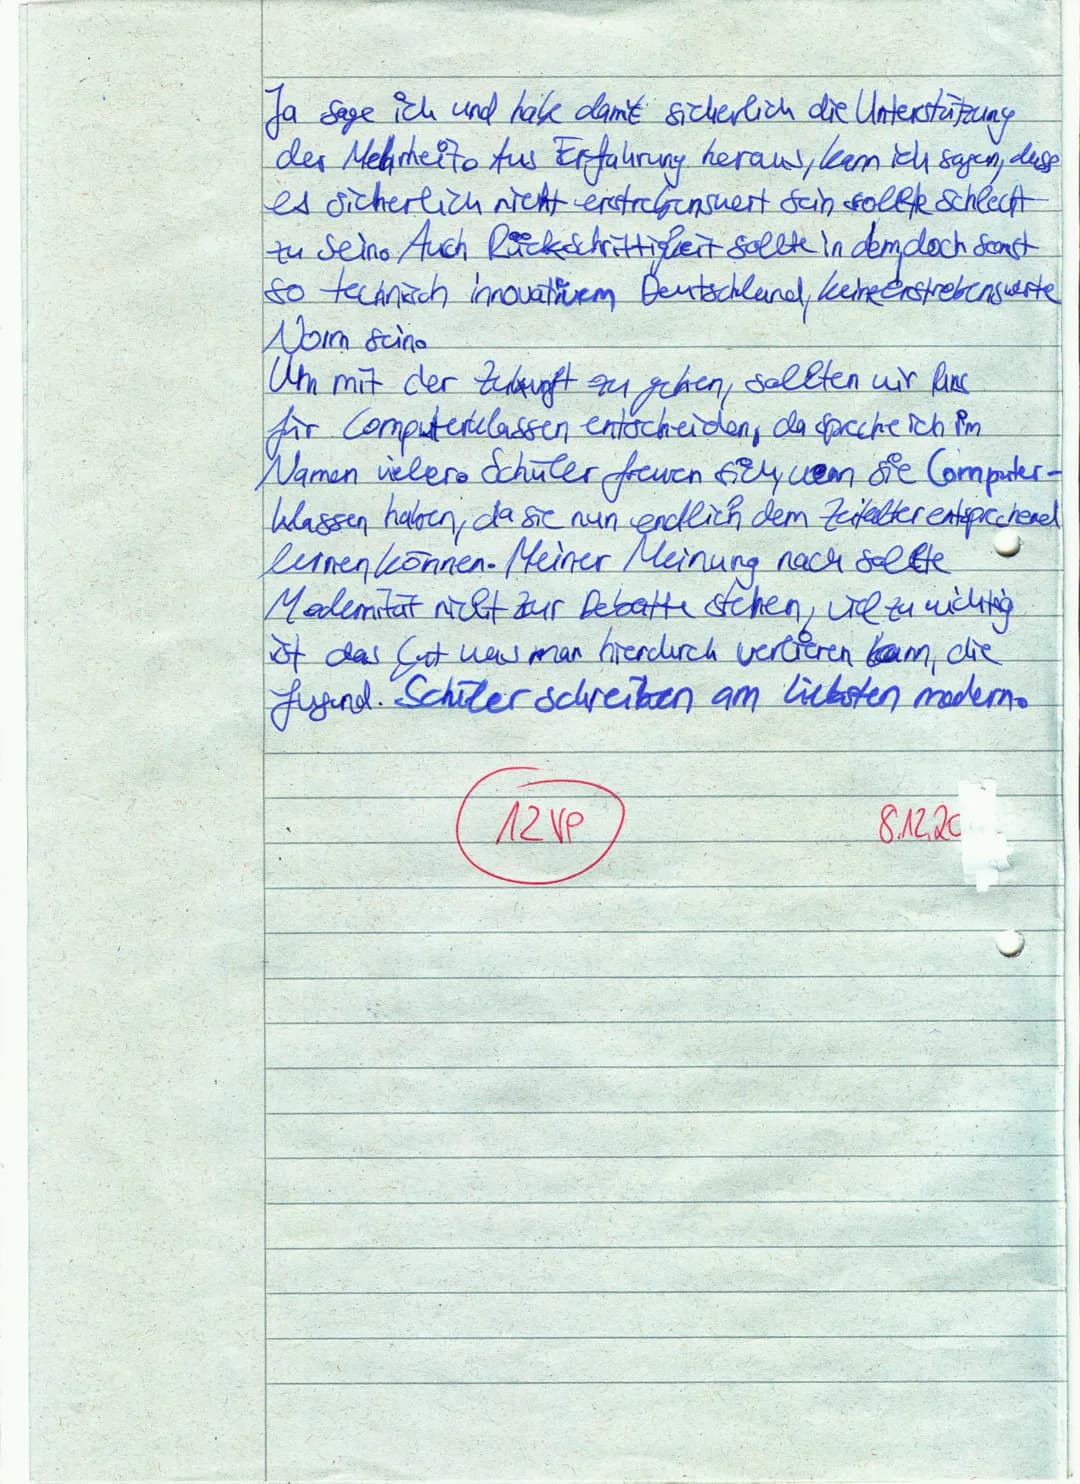 Ja sage ich und habe damit sicherlich die Unterstützung
der Mehrheit. Aus Erfahrung heraus, kann ich sagen, dass
es sicherlich nicht erstrebenswert sein sollte schlecht
zu sein. Auch Rückschrittigkeit sollte in dem, doch sonst
so technisch innovativem Deutschland, keine erstrebenswerte
Norm sein.
Um mit der Zukunft zu gehen, sollten wir uns
für Computerklassen entscheiden, da spreche ich im
Namen vieler. Schüler freuen sich, wenn sie Computer-
klassen haben, da sie nun endlich dem Zeitalter entsprechend
lernen können. Meiner Meinung nach sollte
Modernität nicht zur Debatte stehen, viel zu wichtig
ist das Gut was man hierdurch verlieren kann, die
Jugend. Schüler schreiben am liebsten modern.
12 VP
8.12.20